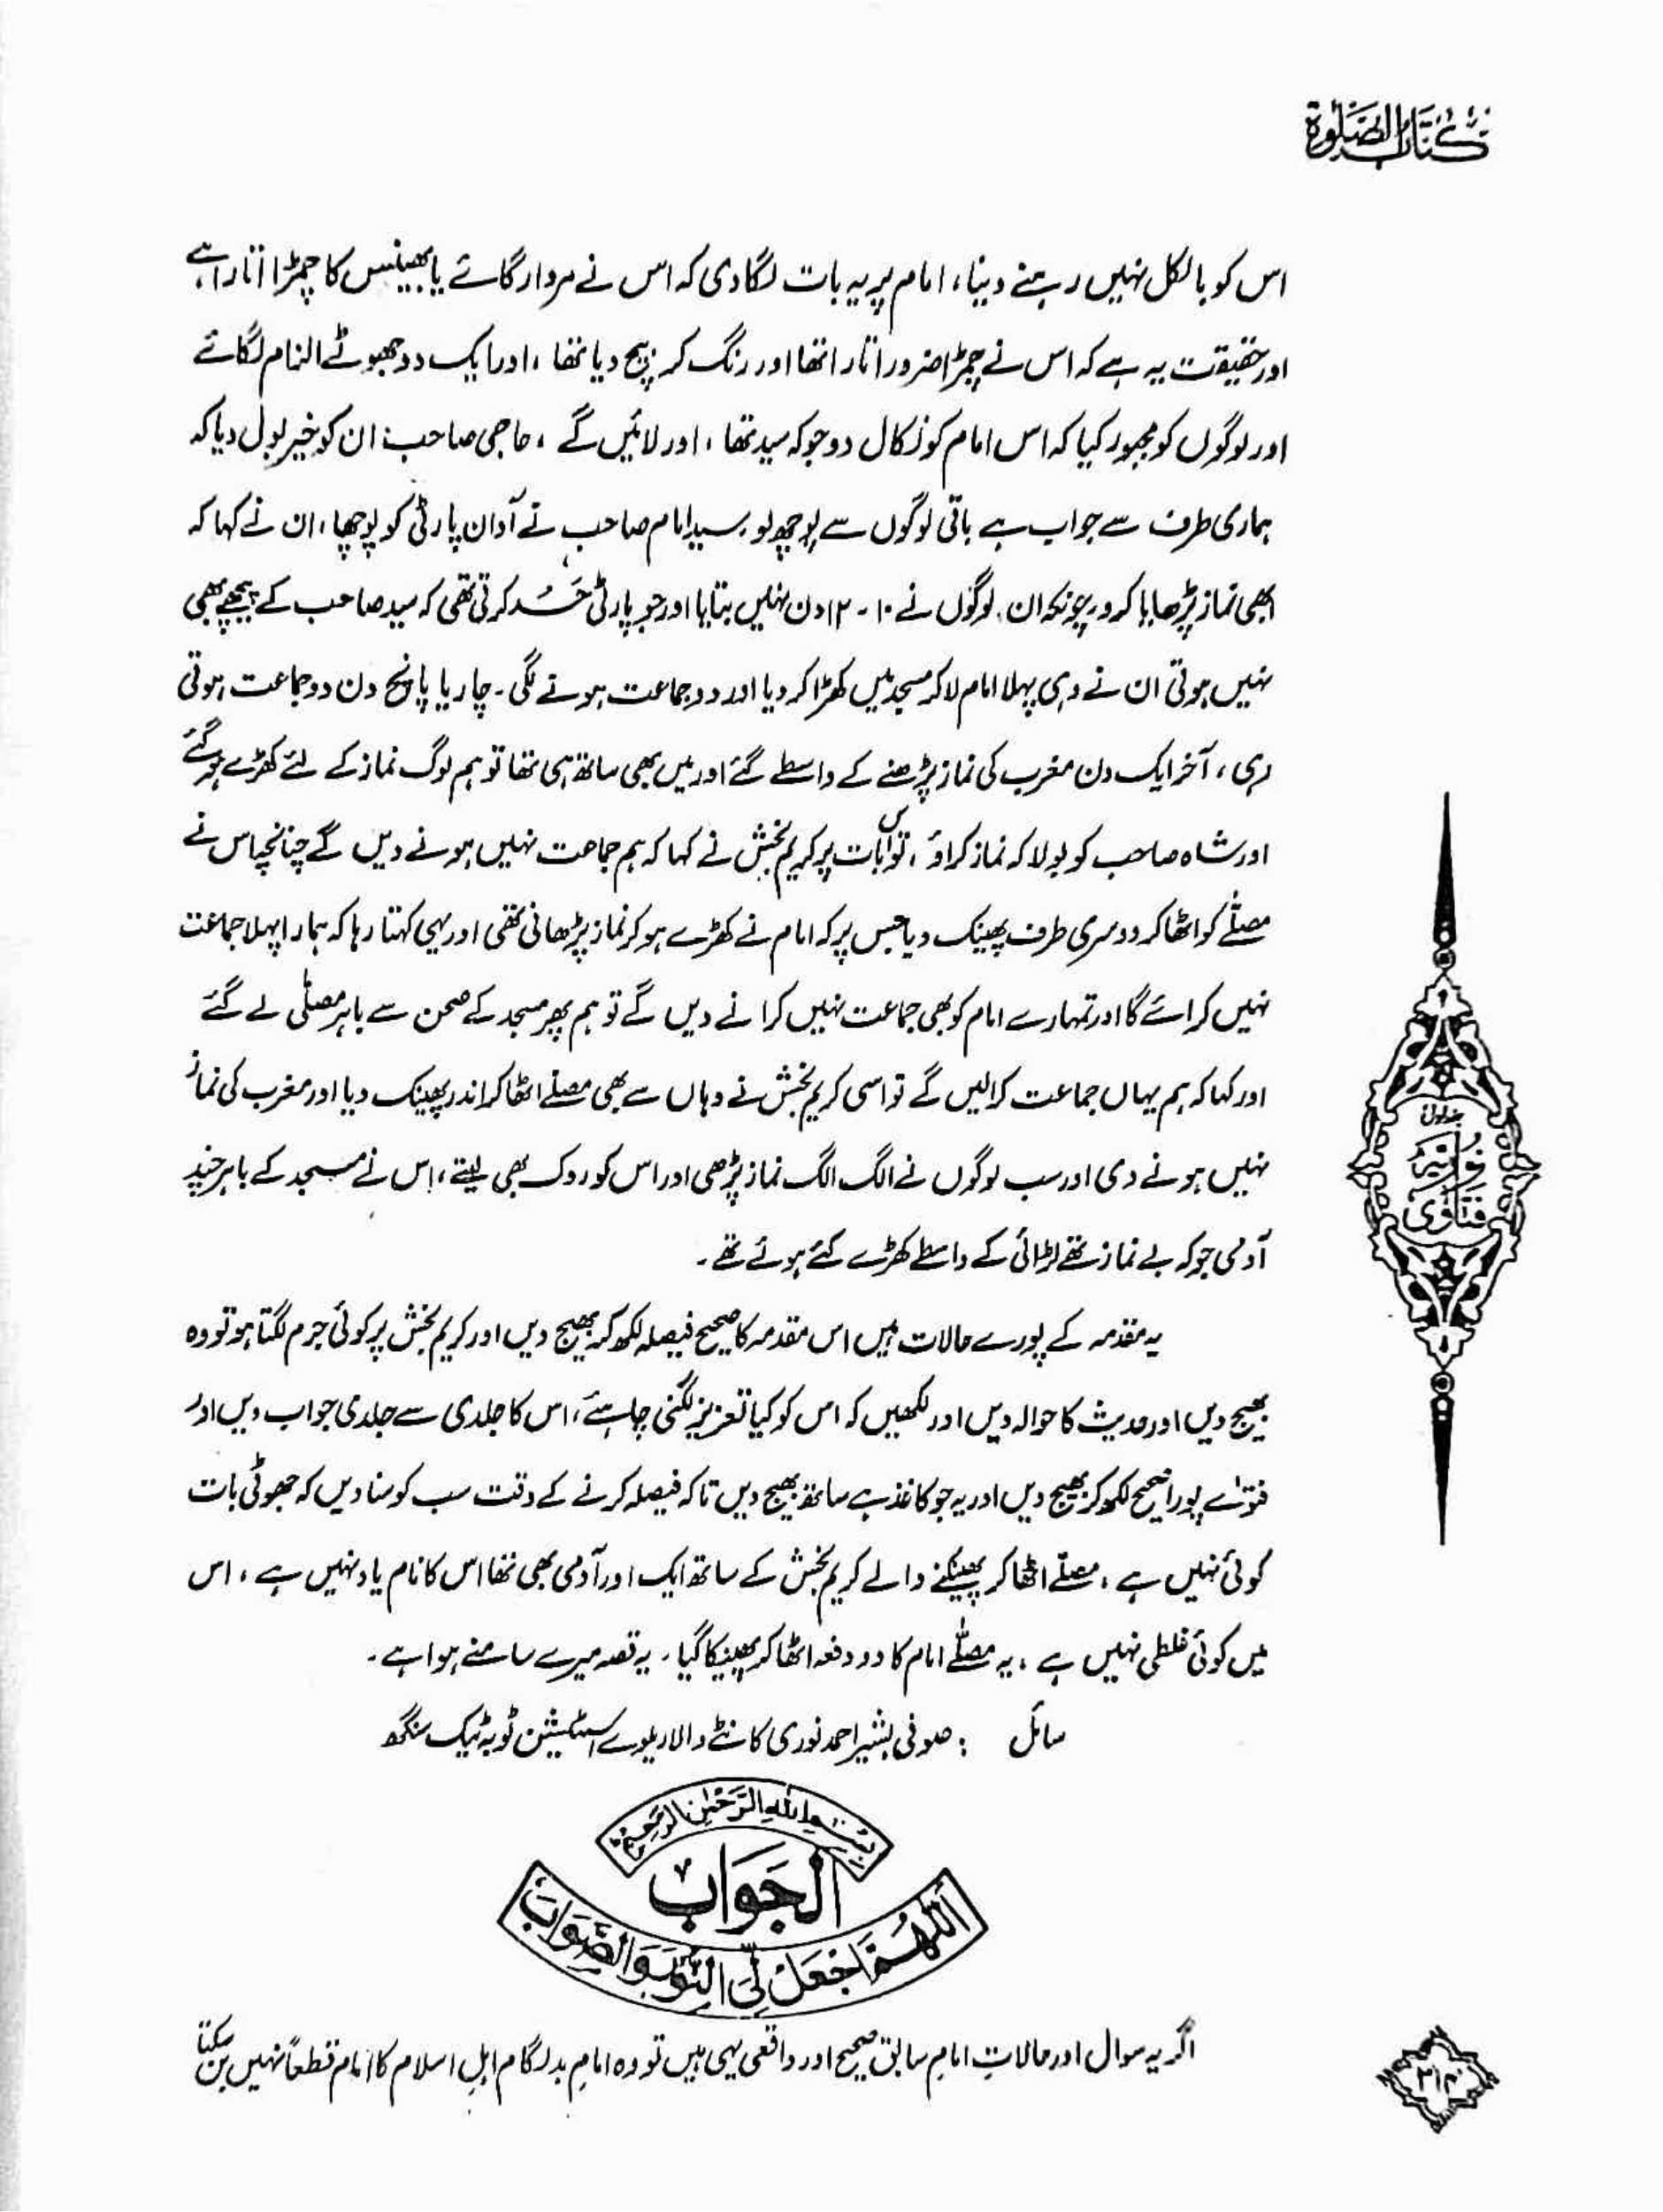 کتاب الصلوة
اس کو بالکل نہیں رہنے دینا، امام پر یہ بات لگا دی کہ اس نے مردار گائے یا بھینس کا چمڑا اتارا ہے،
اور حقیقت یہ ہے کہ اس نے چمڑا ضرور اتارا تھا اور رنگ کر بیچ دیا تھا، اور ایک دو جھوٹے الزام لگائے
اور لوگوں کو مجبور کیا کہ اس امام کو نکال دو جو کہ سید تھا، اور لائیں گے، حاجی صاحب ان کو خیر بول دیا کہ
ہماری طرف سے جواب ہے باقی لوگوں سے پوچھ لو۔ سید امام صاحب نے آدان پارٹی کو پوچھا، ان نے کہا کہ
ابھی نماز پڑھایا کرو۔ چونکہ ان لوگوں نے ۱۰-۱۲ دن نہیں بتایا اور جو پارٹی حَسَد کرتی تھی کہ سید صاحب کے پیچھے بھی
نہیں ہوتی ان نے وہی پہلا امام لا کر مسجد میں کھڑا کر دیا اور دو جماعت ہونے لگی۔ چار یا پانچ دن دو جماعت ہوتی
رہی، آخر ایک دن مغرب کی نماز پڑھنے کے واسطے گئے اور میں بھی ساتھ ہی تھا تو ہم لوگ نماز کے لئے کھڑے ہو گئے
اور شاہ صاحب کو بولا کہ نماز کراؤ، تو اس بات پر کریم بخش نے کہا کہ ہم جماعت نہیں ہونے دیں گے چنانچہ اس نے
مصلّے کو اٹھا کر دوسری طرف پھینک دیا جس پر کہ امام نے کھڑے ہو کر نماز پڑھانی تھی اور یہی کہتا رہا کہ ہمارا پہلا جماعت
نہیں کرائے گا اور تمہارے امام کو بھی جماعت نہیں کرانے دیں گے تو ہم پھر مسجد کے صحن سے باہر مصلّٰی لے گئے
اور کہا کہ ہم یہاں جماعت کرالیں گے تو اسی کریم بخش نے وہاں سے بھی مصلے اٹھا کر اندر پھینک دیا اور مغرب کی نماز
نہیں ہونے دی اور سب لوگوں نے الگ الگ نماز پڑھی اور اس کو روک بھی لیتے، اس نے مسجد کے باہر چند
آدمی جو کہ بے نماز تھے لڑائی کے واسطے کھڑے کئے ہوئے تھے۔
یہ مقدمہ کے پورے حالات ہیں اس مقدمہ کا صحیح فیصلہ لکھ کر بھیج دیں اور کریم بخش پر کوئی جرم لگتا ہو تو وہ
بھیج دیں اور حدیث کا حوالہ دیں اور لکھیں کہ اس کو کیا تعزیر لگنی چاہئے، اس کا جلدی سے جلدی جواب دیں اور
فتوٰے پورا صحیح لکھ کر بھیج دیں اور یہ جو کاغذ ہے ساتھ بھیج دیں تاکہ فیصلہ کرنے کے وقت سب کو سنا دیں کہ جھوٹی بات
کوئی نہیں ہے، مصلّے اٹھا کر پھینکنے والے کریم بخش کے ساتھ ایک اور آدمی بھی تھا اس کا نام یاد نہیں ہے، اس
میں کوئی غلطی نہیں ہے، یہ مصلّٰے امام کا دو دفعہ اٹھا کر پھینکا گیا۔ یہ قصہ میرے سامنے ہوا ہے۔
سائل : صوفی بشیر احمد نوری کانٹے والا ریلوے اسٹیشن ٹوبہ ٹیک سنگھ
بِسْمِ اللهِ الرَّحْمٰنِ الرَّحِيْمِ
اَلْجَوَابُ
اَللّٰهُمَّ اجْعَلْ لِّىَ النُّوْرَ وَالصَّوَابَ
اگر یہ سوال اور حالاتِ امامِ سابق صحیح اور واقعی یہی ہیں تو وہ امامِ بدلگام اہلِ اسلام کا امام قطعاً نہیں بن سکتا
جلد اول
فتاوی نوریہ
۳۱۴